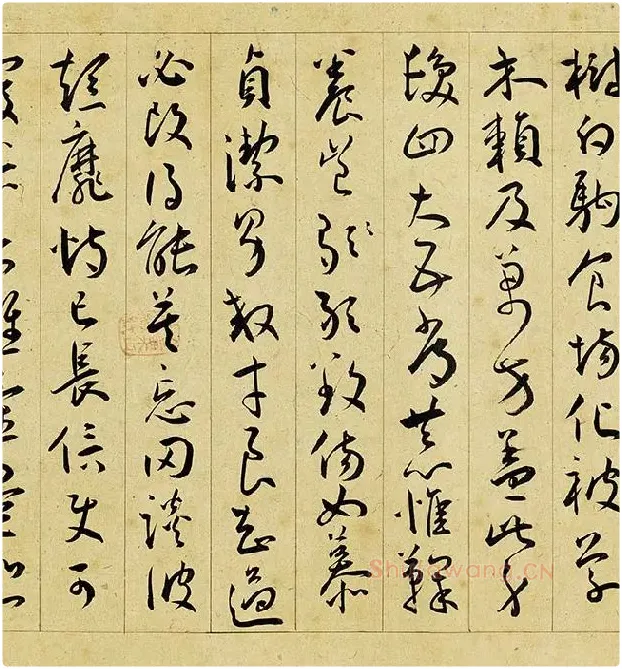 樹白駒食場化被草
木賴及萬方蓋此身
髮四大五常恭惟鞠
養豈敢毀傷女慕
貞潔男效才良知過
必改得能莫忘罔談彼
短靡恃己長信使可